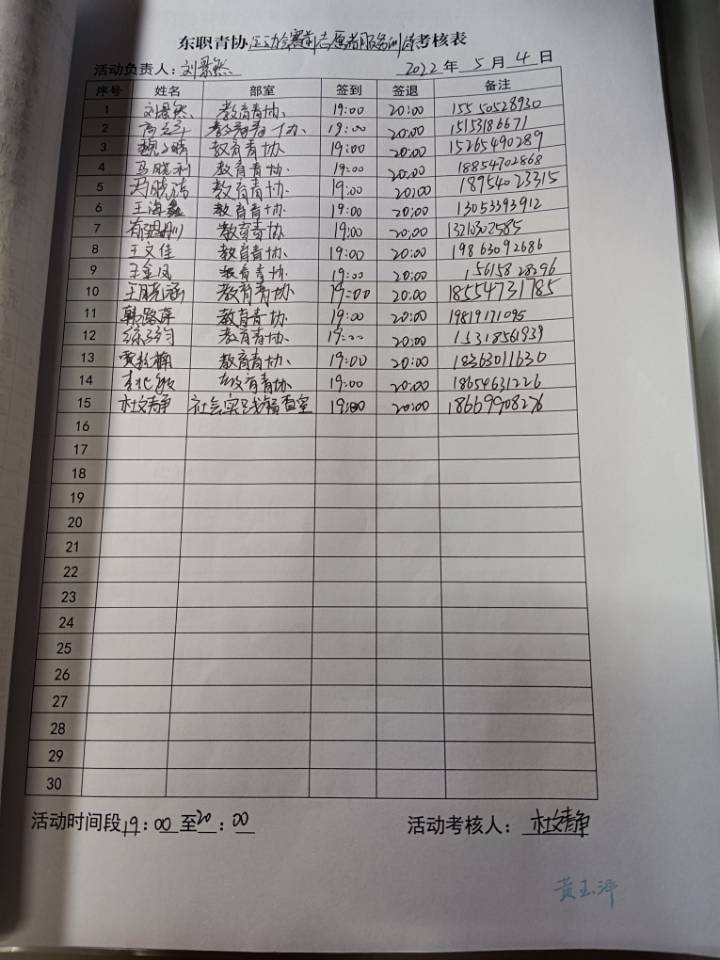 东职青协运动会赛前志愿者服务训练考核表
活动负责人：刘景然 2022年 5月 4日
序号 姓名 部室 签到 签退 备注
1 刘景然 教育青协 19:00 20:00 15550528930
2 教育青协 19:00 20:00 15153186671
3 教育青协 19:00 20:00 15265490289
4 马晓利 教育青协 19:00 20:00 18854702868
5 教育青协 19:00 20:00 18954023315
6 王海鑫 教育青协 19:00 20:00 13053393912
7 教育青协 19:00 20:00 13210302585
8 王文佳 教育青协 19:00 20:00 19863092686
9 王金凤 教育青协 19:00 20:00 15615828296
10 王晓涵 教育青协 19:00 20:00 18554731785
11 韩路萍 教育青协 19:00 20:00 19819171095
12 教育青协 19:00 20:00 15318561939
13 教育青协 19:00 20:00 18363011630
14 李化敏 教育青协 19:00 20:00 18654631226
15 杜文静 社会实践稽查室 19:00 20:00 18669908276
16
17
18
19
20
21
22
23
24
25
26
27
28
29
30
活动时间段19：00至20：00 活动考核人：杜文静
黄玉萍